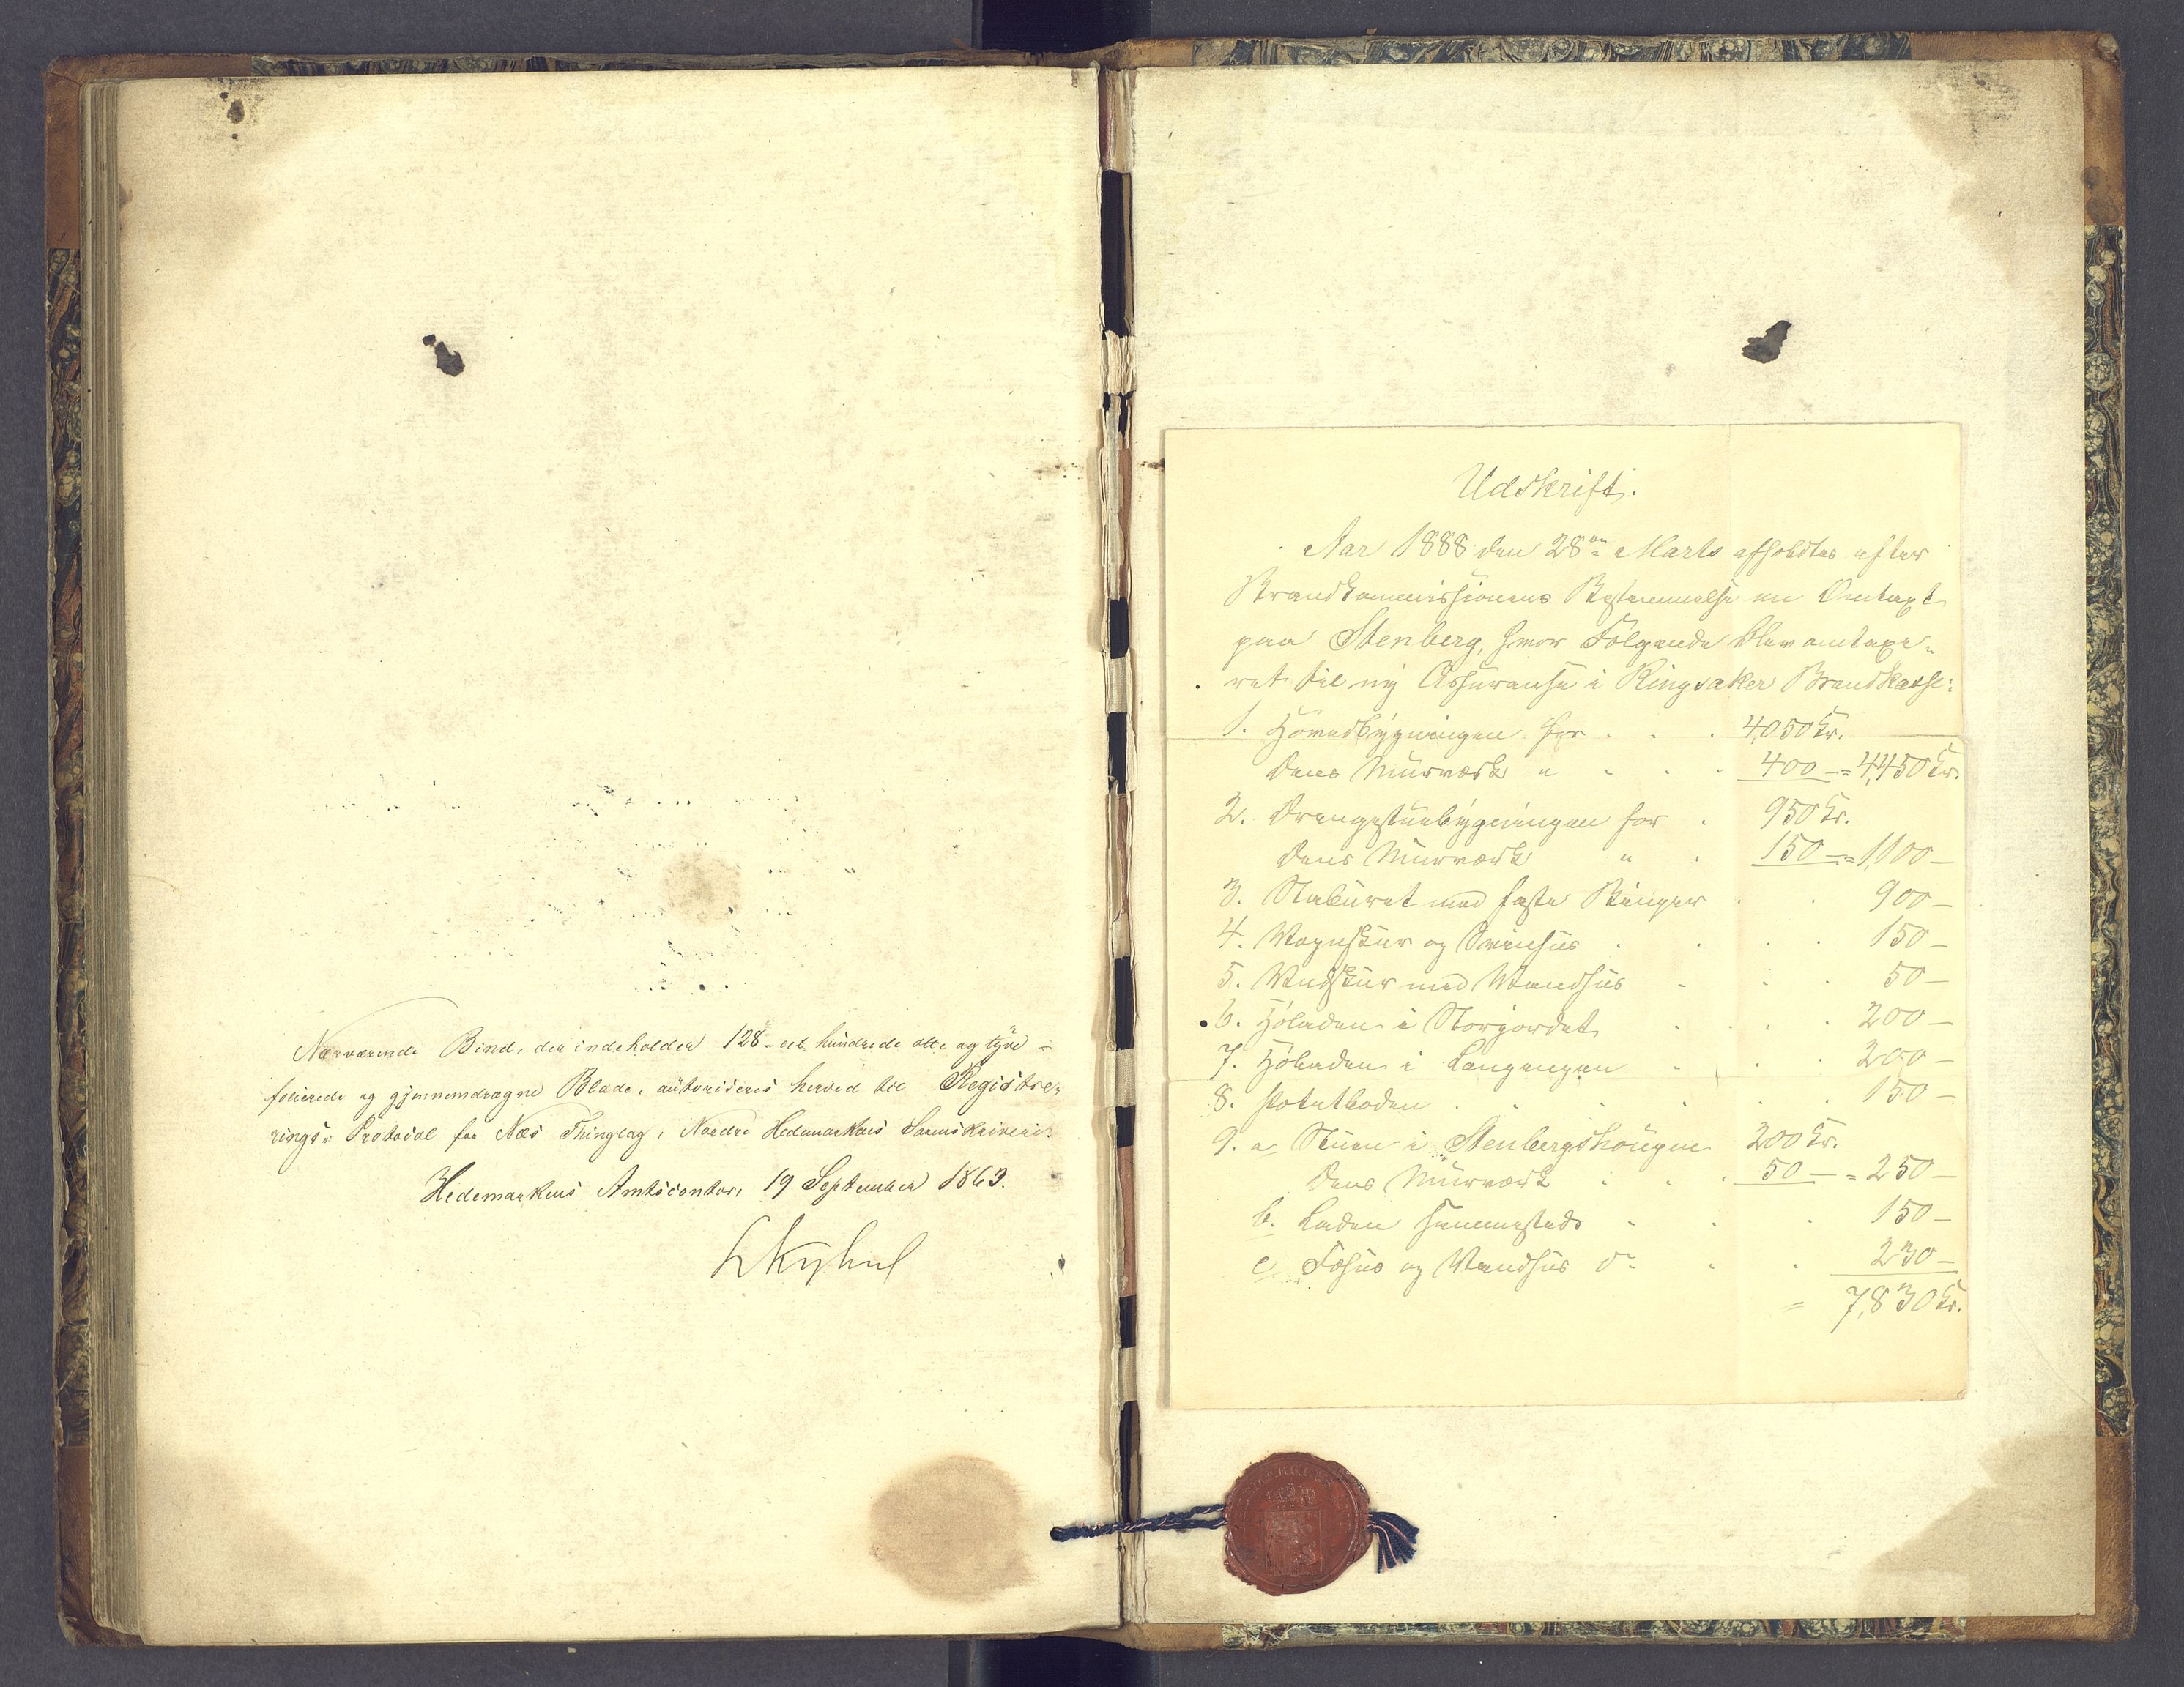 Nærværende Bind, der indeholder 128 - eet hundrede otte og tyve -
folierede og gjennemdragne Blade, autoriseres herved til Registre-
rings-Protocol for Næs Thinglag, Nordre Hedemarkens Sorenskriveri.
Hedemarkens Amtscontor, 19 September 1863.
Udskrift.
Aar 1888 den 28de Marts afholdtes efter
Brandkommissionens Bestemmelse en Omtaxt
paa Stenberg, hvor Følgende blev omtaxe-
ret til ny Assuranse i Ringsaker Brandkasse:
1. Hovedbygningen for . . . 4,050 Kr.
dens Murværk " . . . 400 - = 4,450 Kr.
2. Drengestuebygningen for . 950 Kr.
dens Murværk " . 150 - = 1,100 -
3. Staburet med faste Binger . . 900 -
4. Vognskur og Svinhus . . . . 150 -
5. Vedskur med Vandhus . . . 50 -
6. Høladen i Storjordet . . . . 200 -
7. Høladen i Langengen . . . 200 -
8. Potetboden . . . . . . 150 -
9. a, Stuen i Stenbergshaugen 200 Kr.
dens Murværk . . . 50 - = 250 -
b. Laden sammesteds . . . 150 -
c, Fæhus og Vandhus do . . 230 -
= 7,830 Kr.